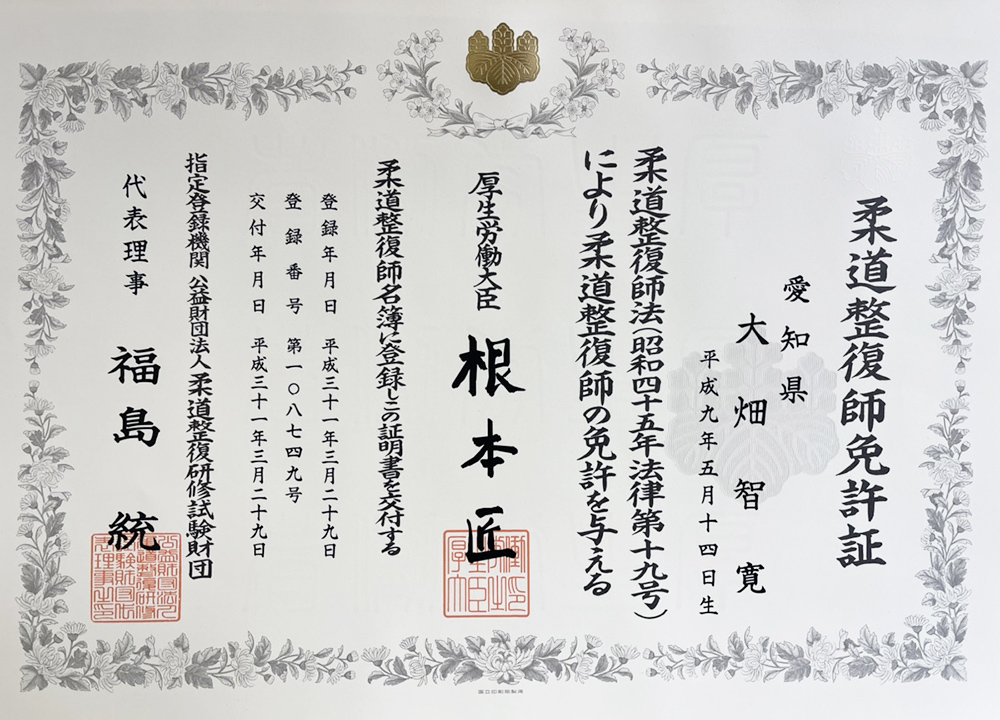 柔道整復師免許証
愛知県
大畑智寛
平成九年五月十四日生
柔道整復師法(昭和四十五年法律第十九号)
により柔道整復師の免許を与える
厚生労働大臣 根本匠
柔道整復師名簿に登録しこの証明書を交付する
登録年月日 平成三十一年三月二十九日
登録番号 第一〇八七四九号
交付年月日 平成三十一年三月二十九日
指定登録機関 公益財団法人柔道整復研修試験財団
代表理事 福島統